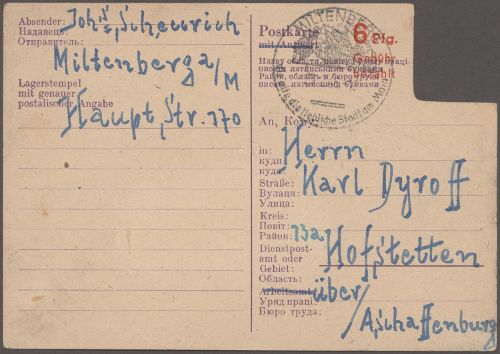 Absender:
Надавець:
Отправитель:
Joh. Scheurich
Miltenberg a/M
Lagerstempel
mit genauer
postalischer Angabe
Haupt Str. 170
Postkarte
mit Antwort
MILTENBERG
die liebliche Stadt am Main
6 Pfg.
Gebühr
bezahlt
Назву области, повіту
писати латинськими буквами
Район, область и бюро труда
писать латинскими буквами
An, Кому
Herrn
in:
куди
куда
Karl Dyroff
Straße:
Вулиця:
Улица:
Kreis:
Повіт:
Район:
13a
Hofstetten
Dienstpost-
amt oder
Gebiet:
Область:
über
Arbeitsamt:
Уряд праці:
Бюро труда:
/Aschaffenburg